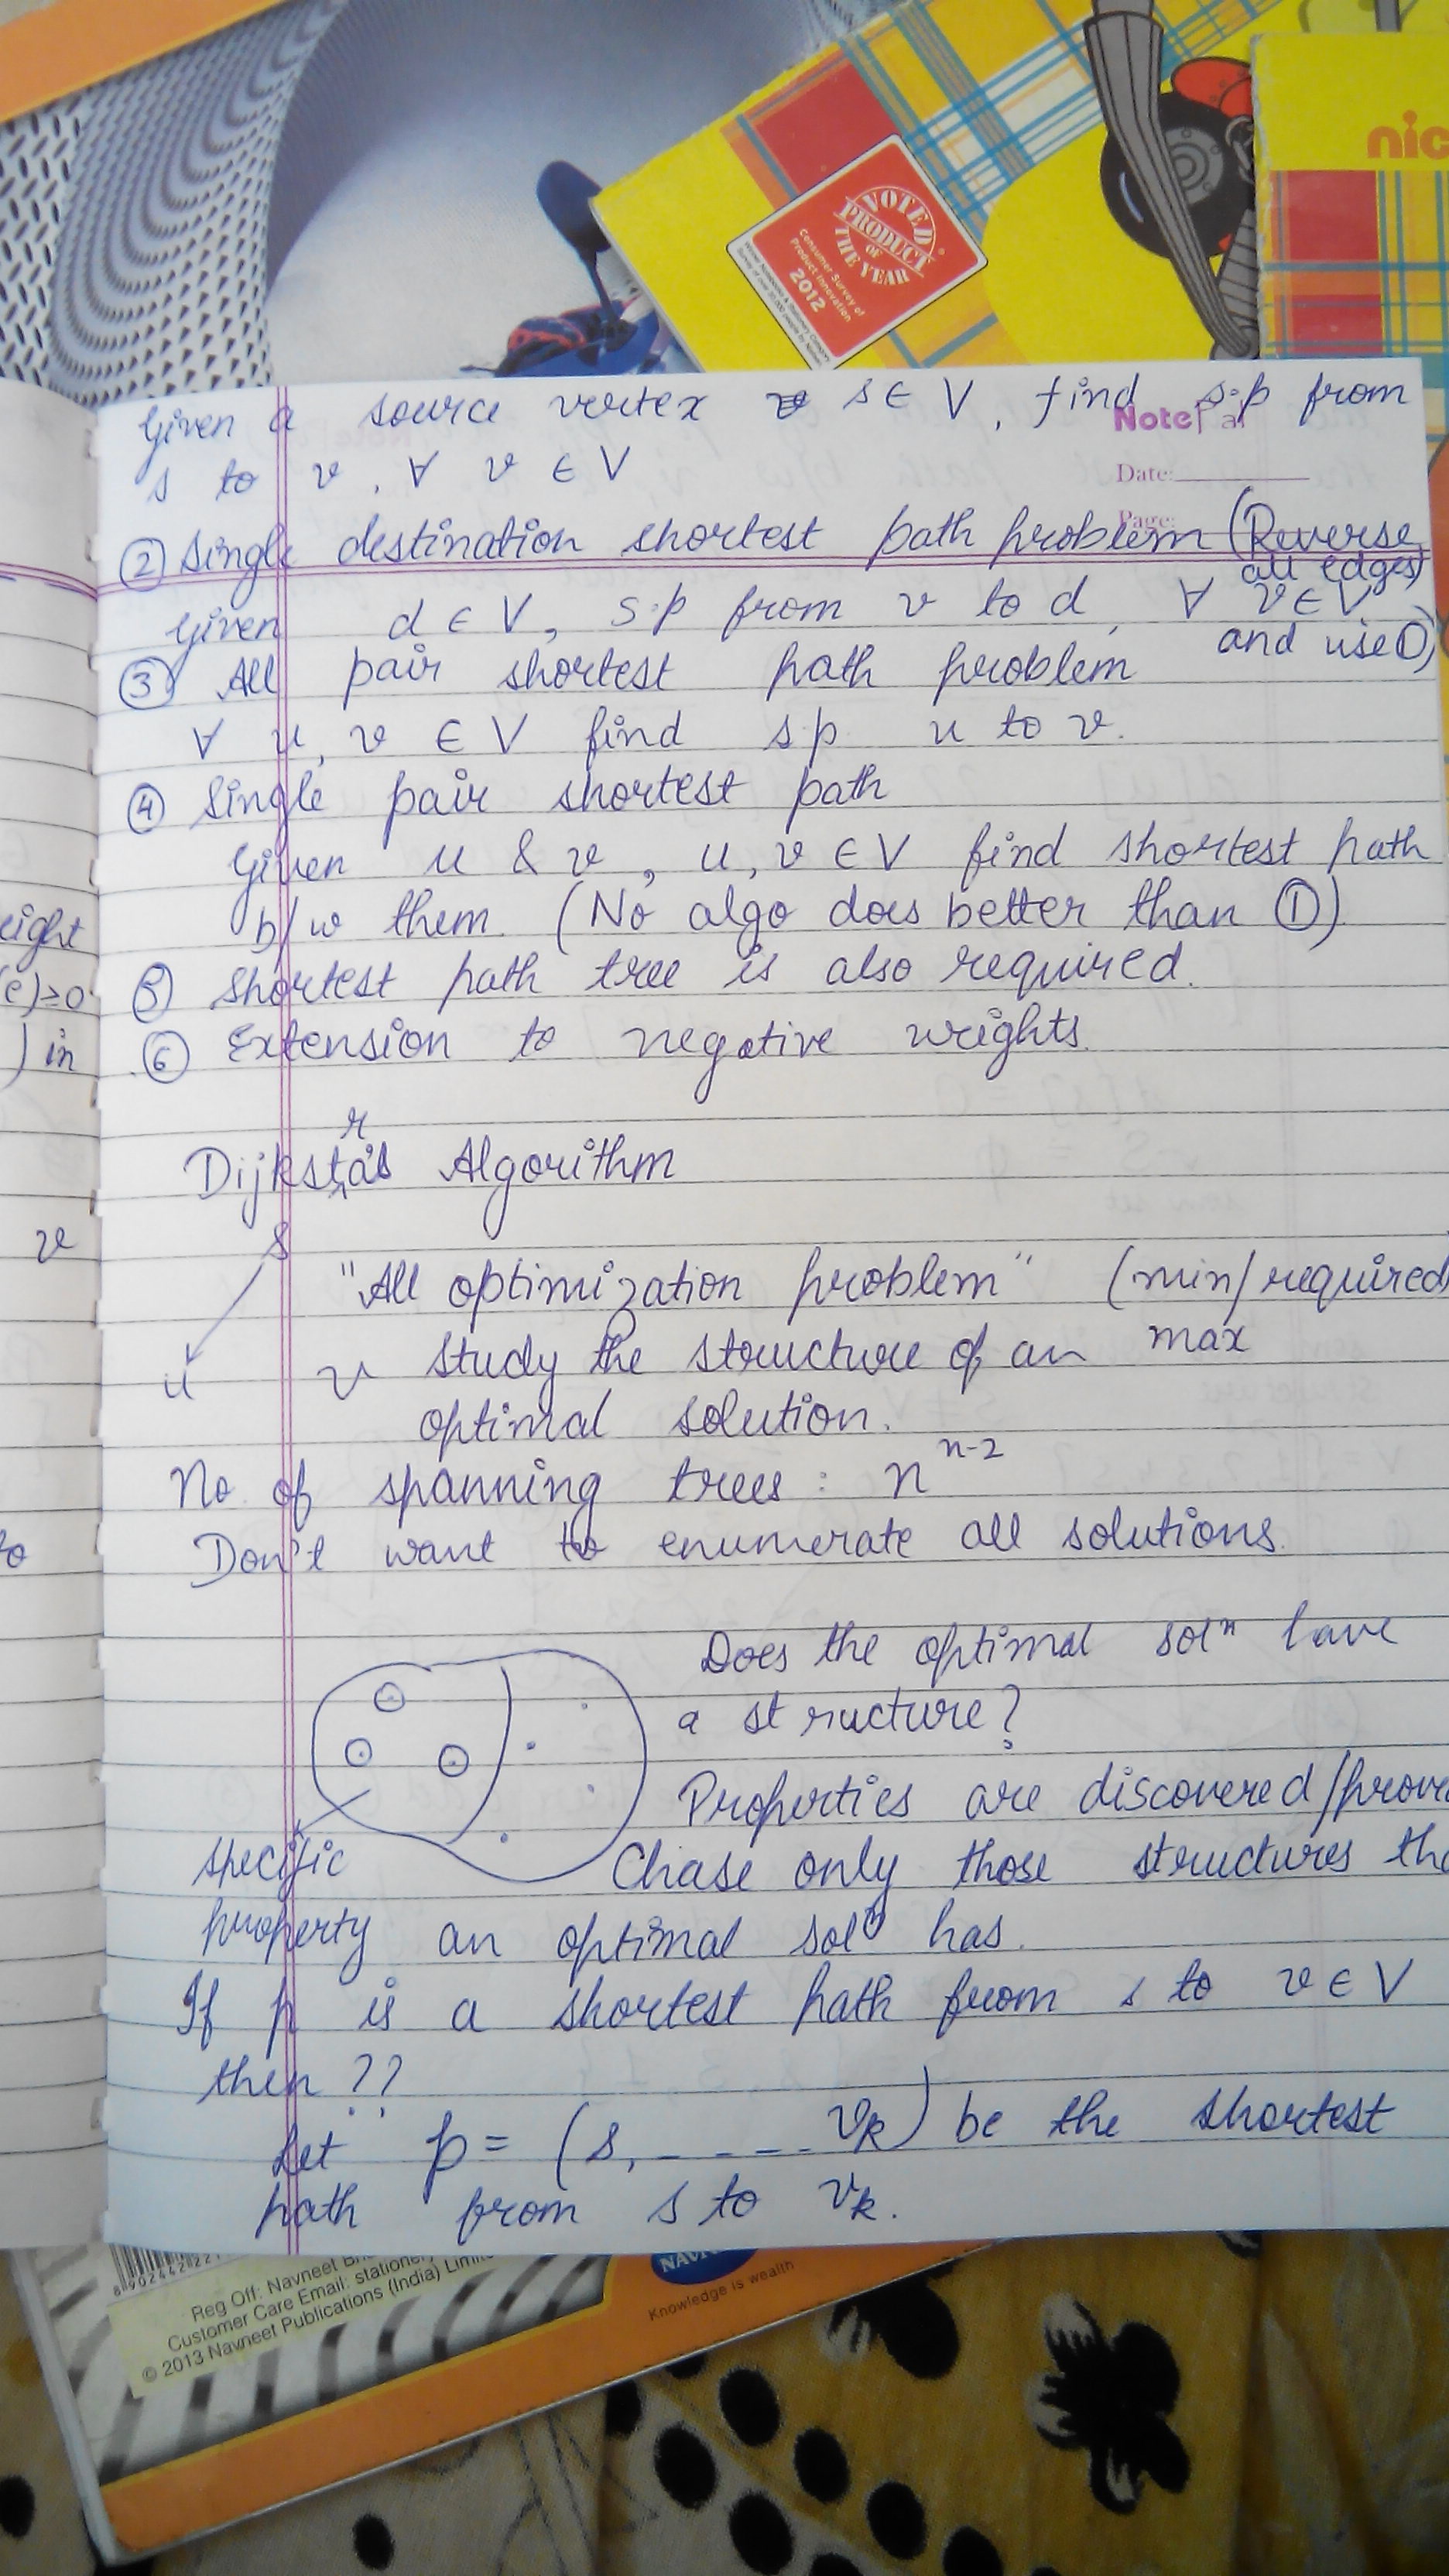 nic
VOTED
PRODUCT
OF
THE YEAR
Consumer Survey of
Product Innovation
2012
Given a source vertex s ∈ V, find s.p from
Note
s to v, ∀ v ∈ V
Date:
Page:
② Single destination shortest path problem (Reverse
all edges
Given d ∈ V, s.p from v to d, ∀ v ∈ V
and use ①)
③ All pair shortest path problem
∀ u, v ∈ V find sp u to v.
④ Single pair shortest path
Given u & v, u, v ∈ V find shortest path
b/w them. (No algo does better than ①)
⑤ Shortest path tree is also required.
⑥ Extension to negative weights.
eight
(e)≥0
) in
v
to
Dijkstra's Algorithm
s
"All optimization problem" (min/required
max
u v study the structure of an
optimal solution.
No of spanning trees : n^{n-2}
Don't want to enumerate all solutions.
Does the optimal solⁿ have
a structure?
Properties are discovered/prove
specific Chase only those structures tha
property an optimal solⁿ has.
If p is a shortest path from s to v ∈ V
then ??
Let p = (s, - - - - v_k) be the shortest
path from s to v_k.
8 902442 22
Reg Off: Navneet B
Customer Care Email: stationery
© 2013 Navneet Publications (India) Limi
NAV
Knowledge is wealth